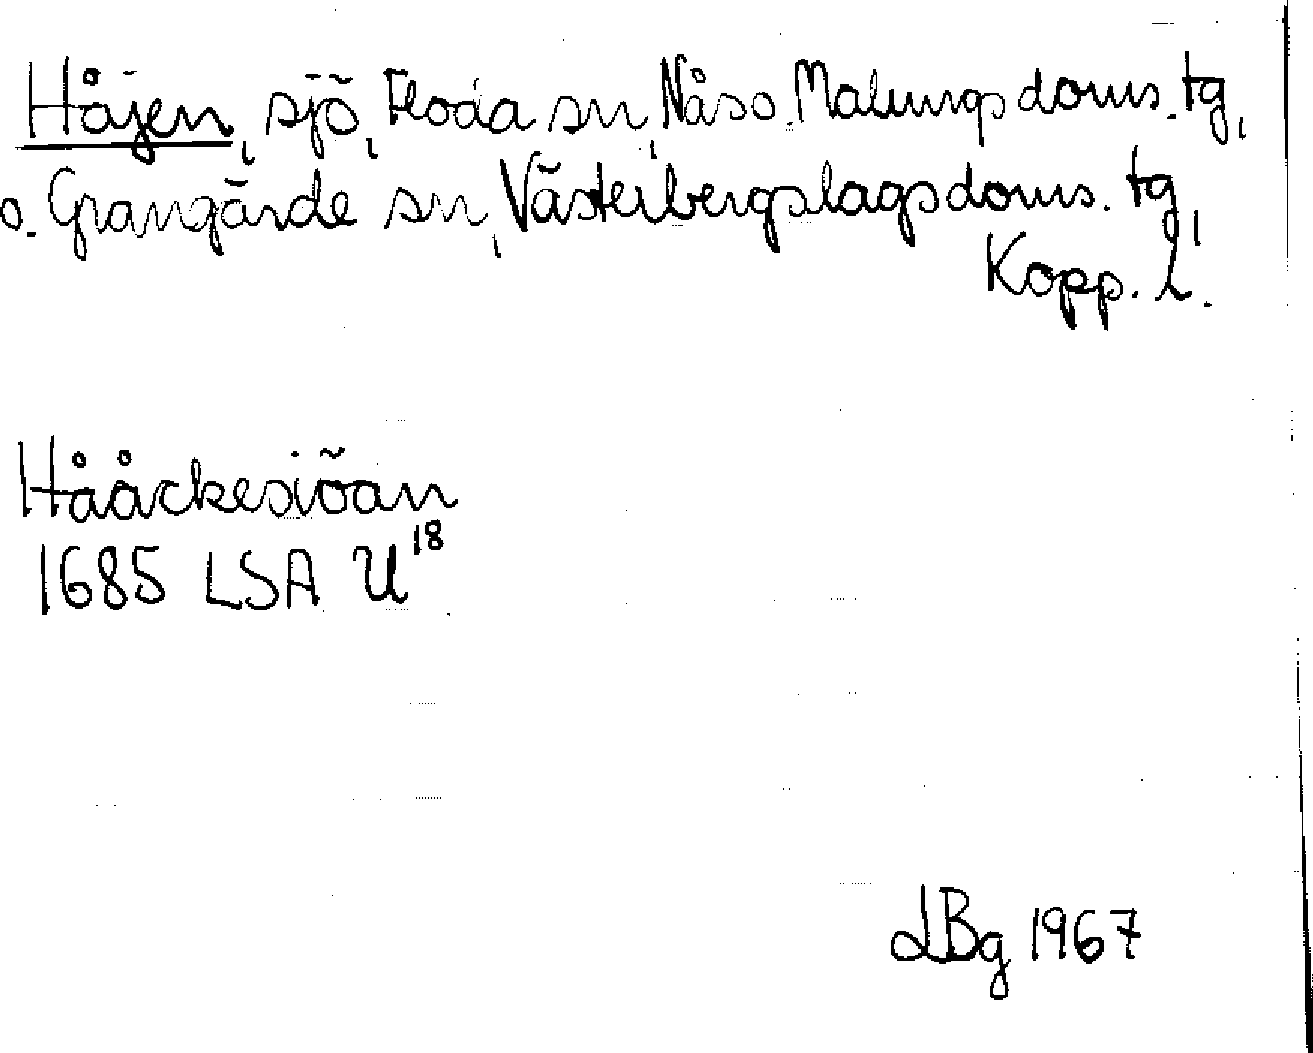 Håjen, sjö, Floda sn, Nås o. Malungs doms. tg,
o. Grangärde sn, Västerbergslags doms. tg,
Kopp. l.
Hååckesiöan
1685 LSA U 18
LBg 1967